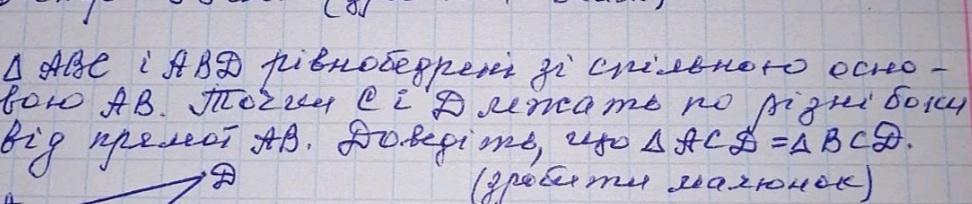 Δ ABC і ABD рівнобедрені зі спільною осно-
вою AB. Точки C і D лежать по різні боки
від прямої AB. Доведіть, що Δ ACD = Δ BCD.
D (зробити малюнок)